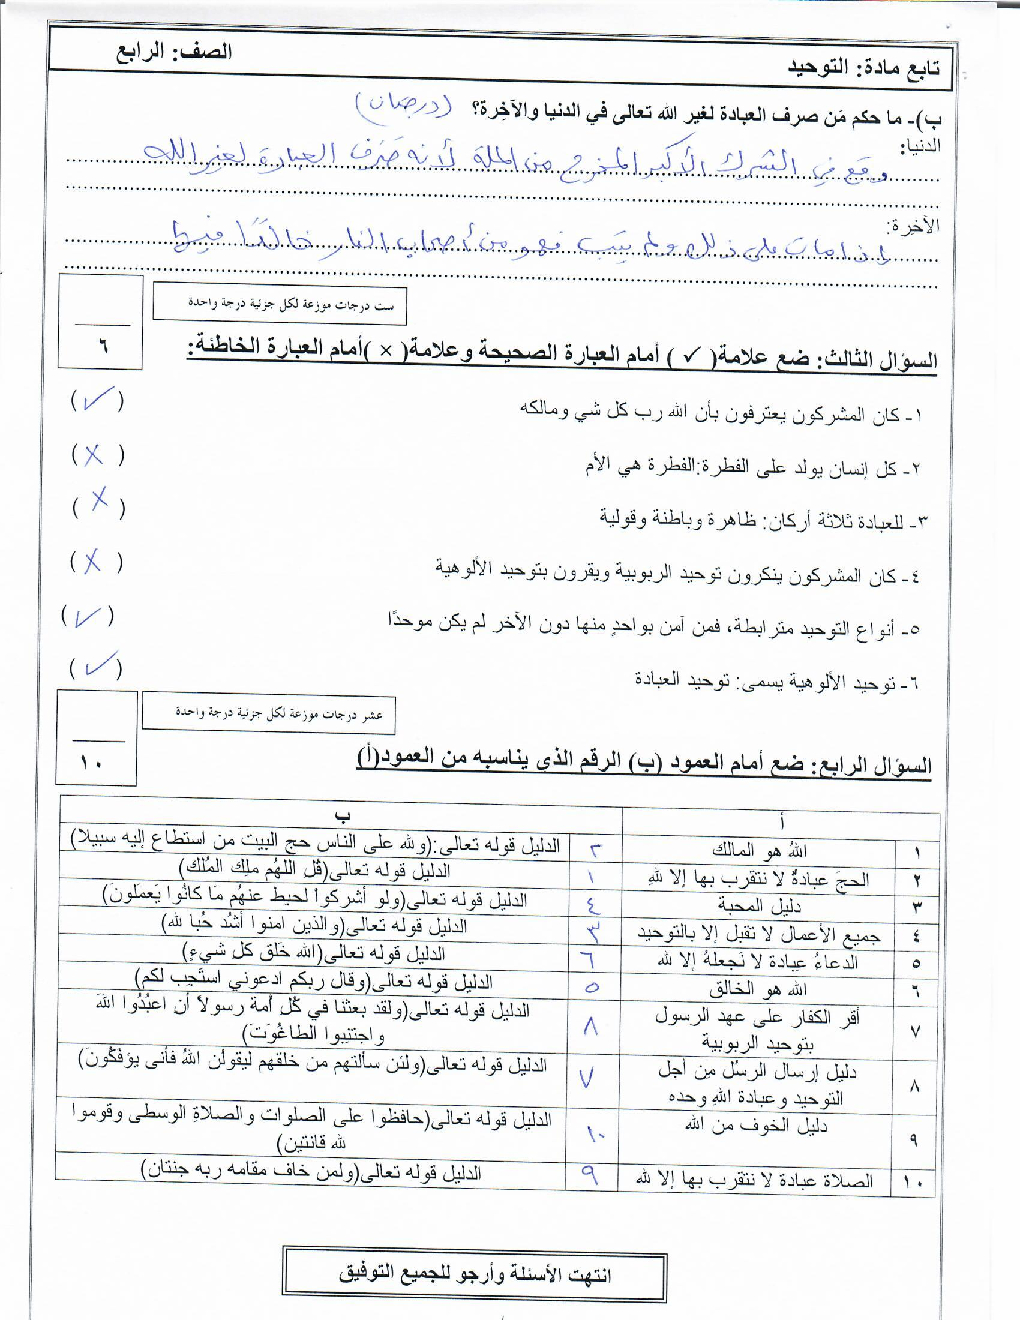 تابع مادة: التوحيد الصف: الرابع
ب)- ما حكم مَن صرف العبادة لغير الله تعالى في الدنيا والآخرة؟ (درجتان)
الدنيا:
وقع في الشرك الأكبر المخرج من الملة لأنه صَرَف العبادة لغير الله
الآخرة:
إذا مات على ذلك ولم يتب فهو من أصحاب النار خالدًا فيها
ست درجات موزعة لكل جزئية درجة واحدة
٦
السؤال الثالث: ضع علامة( ✓ ) أمام العبارة الصحيحة وعلامة( × )أمام العبارة الخاطئة:
١- كان المشركون يعترفون بأن الله رب كل شي ومالكه (✓)
٢- كل إنسان يولد على الفطرة:الفطرة هي الأم (×)
٣- للعبادة ثلاثة أركان: ظاهرة وباطنة وقولية (×)
٤- كان المشركون ينكرون توحيد الربوبية ويقرون بتوحيد الألوهية (×)
٥- أنواع التوحيد مترابطة، فمن آمن بواحدٍ منها دون الآخر لم يكن موحدًا (✓)
٦- توحيد الألوهية يسمى: توحيد العبادة (✓)
عشر درجات موزعة لكل جزئية درجة واحدة
١٠
السؤال الرابع: ضع أمام العمود (ب) الرقم الذي يناسبه من العمود(أ)
أ ب
١ اللهُ هو المالك ٢ الدليل قوله تعالى:(ولله على الناس حج البيت من استطاع إليه سبيلا)
٢ الحجَ عبادةٌ لا نتقرب بها إلا للهِ ١ الدليل قوله تعالى(قُل اللهُم ملِك المُلك)
٣ دليل المحبة ٤ الدليل قوله تعالى(ولو أشركوا لحبط عنهُم مَا كانُوا يَعملونَ)
٤ جميع الأعمال لا تقبل إلا بالتوحيد ٣ الدليل قوله تعالى(والذين امنوا أشدُ حُبا لله)
٥ الدعاءُ عبادة لا نَجعلهُ إلا لله ٦ الدليل قوله تعالى(الله خلَق كل شيءٍ)
٦ الله هو الخالق ٥ الدليل قوله تعالى(وقال ربكم ادعوني استَجِب لكم)
٧ أقر الكفار على عهد الرسول ٨ الدليل قوله تعالى(ولقد بعثنا في كُل أمة رسولاً أن اعبُدُوا اللهَ
بتوحيد الربوبية واجتنِبوا الطاغُوتَ)
٨ دليل إرسال الرسُل مِن أجل ٧ الدليل قوله تعالى(ولئن سألتهم من خلقهم ليقولُن اللهُ فأنى يؤفكُون)
التوحيد وعبادة اللهِ وحده
٩ دليل الخوف من الله ١٠ الدليل قوله تعالى(حافظوا على الصلوات والصلاةِ الوسطى وقوموا
لله قانتين)
١٠ الصلاة عبادة لا نتقرب بها إلا لله ٩ الدليل قوله تعالى(ولمن خاف مقامه ربه جنتان)
انتهت الأسئلة وأرجو للجميع التوفيق